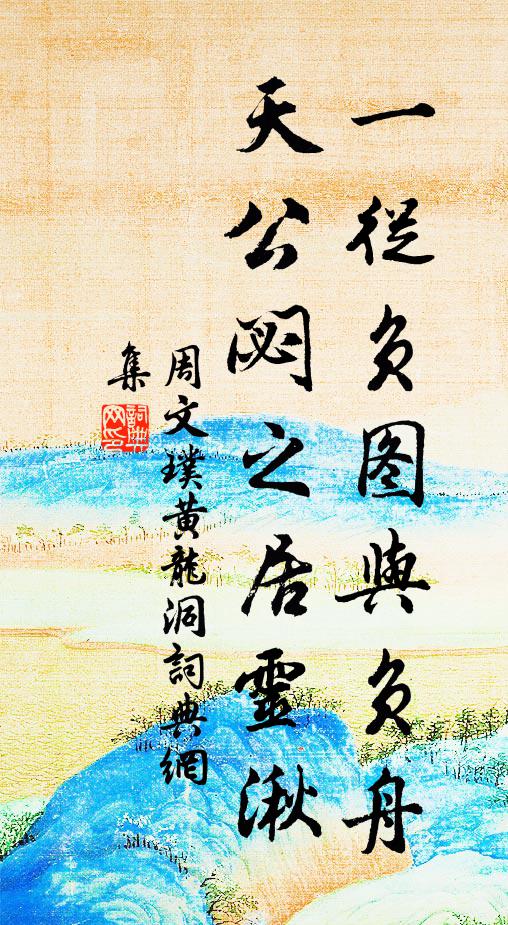 一從負图與負舟
天公閟之居靈湫
周文璞黃龍洞詞典網
集
詞典网印